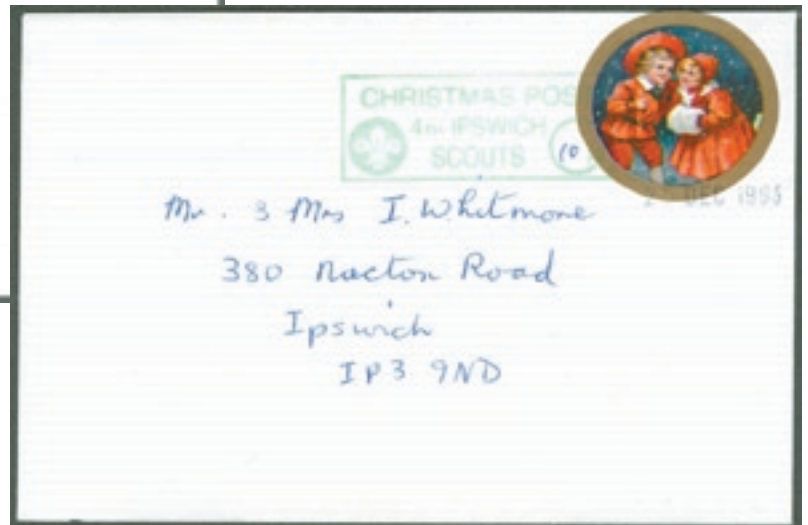 CHRISTMAS POS
4TH IPSWICH
SCOUTS
10
DEC 1993
Mr. & Mrs I. Whitmore
380 Nacton Road
Ipswich
IP3 9ND